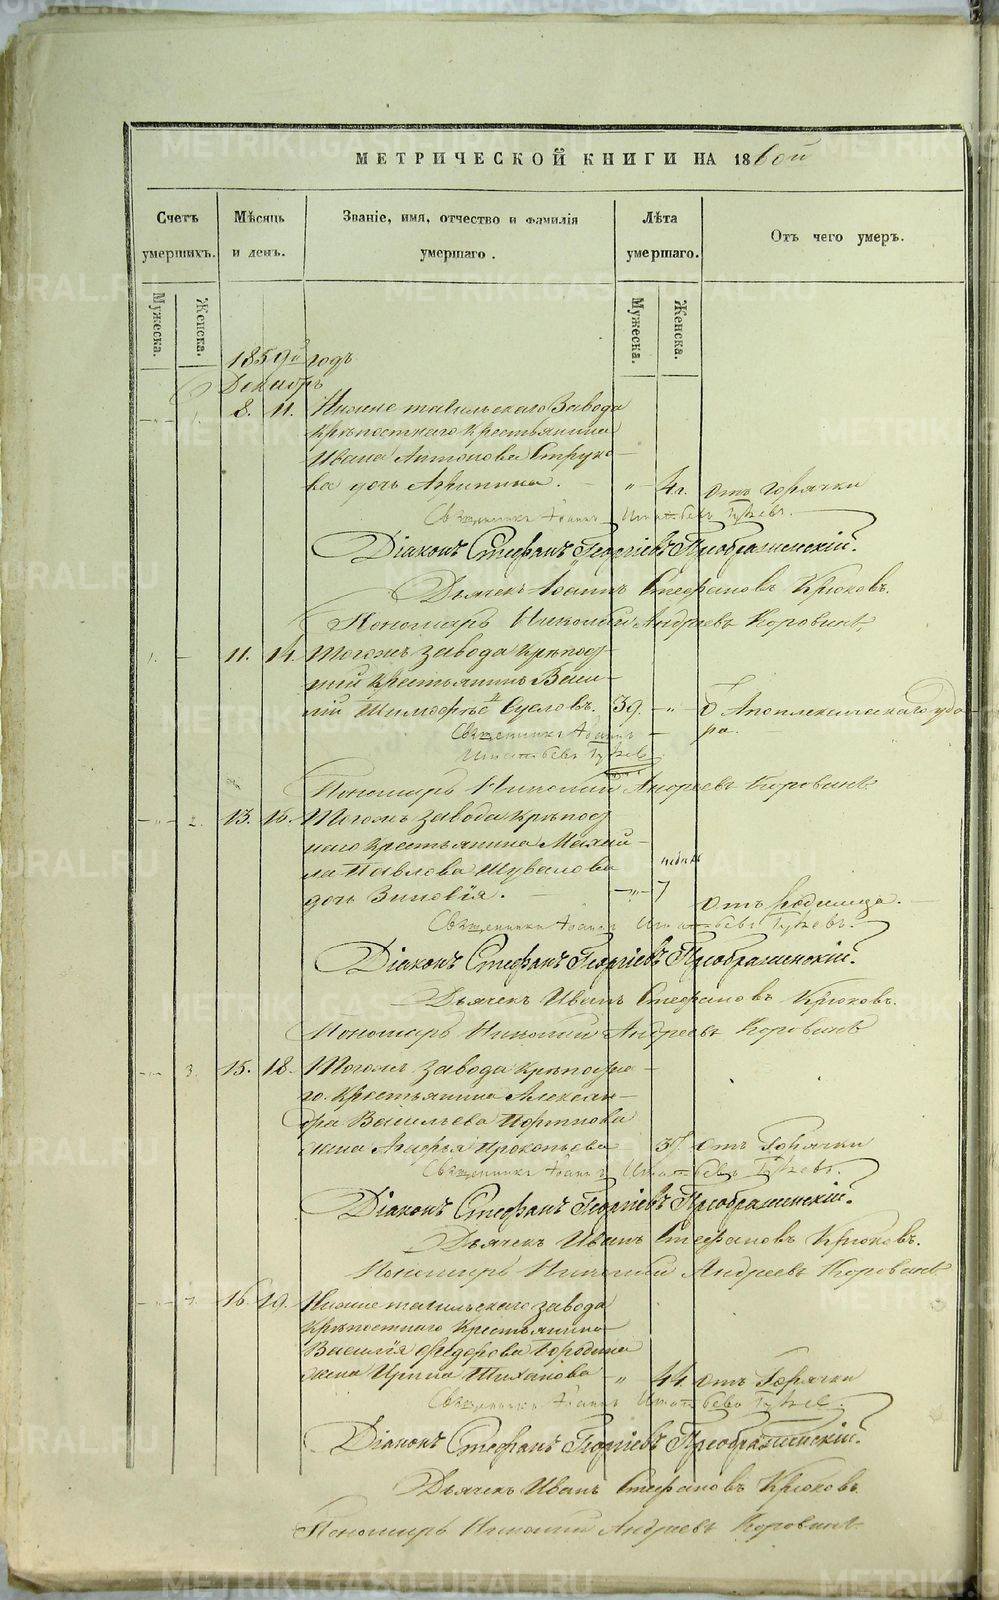 МЕТРИЧЕСКОЙ КНИГИ НА 1860й
Счетъ умершихъ.
Мѣсяцъ и день.
Званіе, имя, отчество и фамилія умершаго.
Лѣта умершаго.
Отъ чего умеръ.
Мужеска.
Женска.
Мужеска.
Женска.
1859й годъ
Декабрь
8. 11. Нижнетагильскаго Завода
крѣпостнаго крестьянина
Ивана Антонова Струко-
ва дочь Агрипина. - „ 4 г. отъ горячки
Священникъ Іоаннъ Игнатьевъ
Діаконъ Стефанъ Георгіевъ Преображенскій.
Дьячекъ Іоаннъ Стефановъ Крюковъ.
Пономарь Николай Андреевъ Коровинъ.
1. - 11. 14. Тогожъ завода крѣпост-
ный крестьянинъ Васи-
лій Тимофѣевъ Сусловъ. 39. - „ - Апоплексическаго уда-
ра.
Священникъ Іоаннъ
Игнатьевъ
Пономарь Николай Андреевъ Коровинъ.
- „ - 2. 13. 16. Тогожъ завода крѣпост-
наго крестьянина Михаи-
ла Павлова Шувалова
дочь Зиновія. - - „ - 7 отъ Родимца.
Священникъ Іоаннъ Игнатьевъ
Діаконъ Стефанъ Георгіевъ Преображенскій.
Дьячекъ Иванъ Стефановъ Крюковъ.
Пономарь Николай Андреевъ Коровинъ
3. 15. 18. Тогожъ завода крѣпостна-
го крестьянина Алексан-
дра Васильева
жена Агафья Прокопьева отъ Горячки
Священникъ Іоаннъ Игнатьевъ
Діаконъ Стефанъ Георгіевъ Преображенскій.
Дьячекъ Иванъ Стефановъ Крюковъ.
Пономарь Николай Андреевъ Коровинъ
16. 19. Нижнетагильскаго завода
крѣпостнаго крестьянина
Василія Федорова Бородина
жена Ирина - „ 44. отъ Горячки
Священникъ Іоаннъ Игнатьевъ
Діаконъ Стефанъ Георгіевъ Преображенскій.
Дьячекъ Иванъ Стефановъ Крюковъ.
Пономарь Николай Андреевъ Коровинъ
METRIKI.GASO-URAL.RU